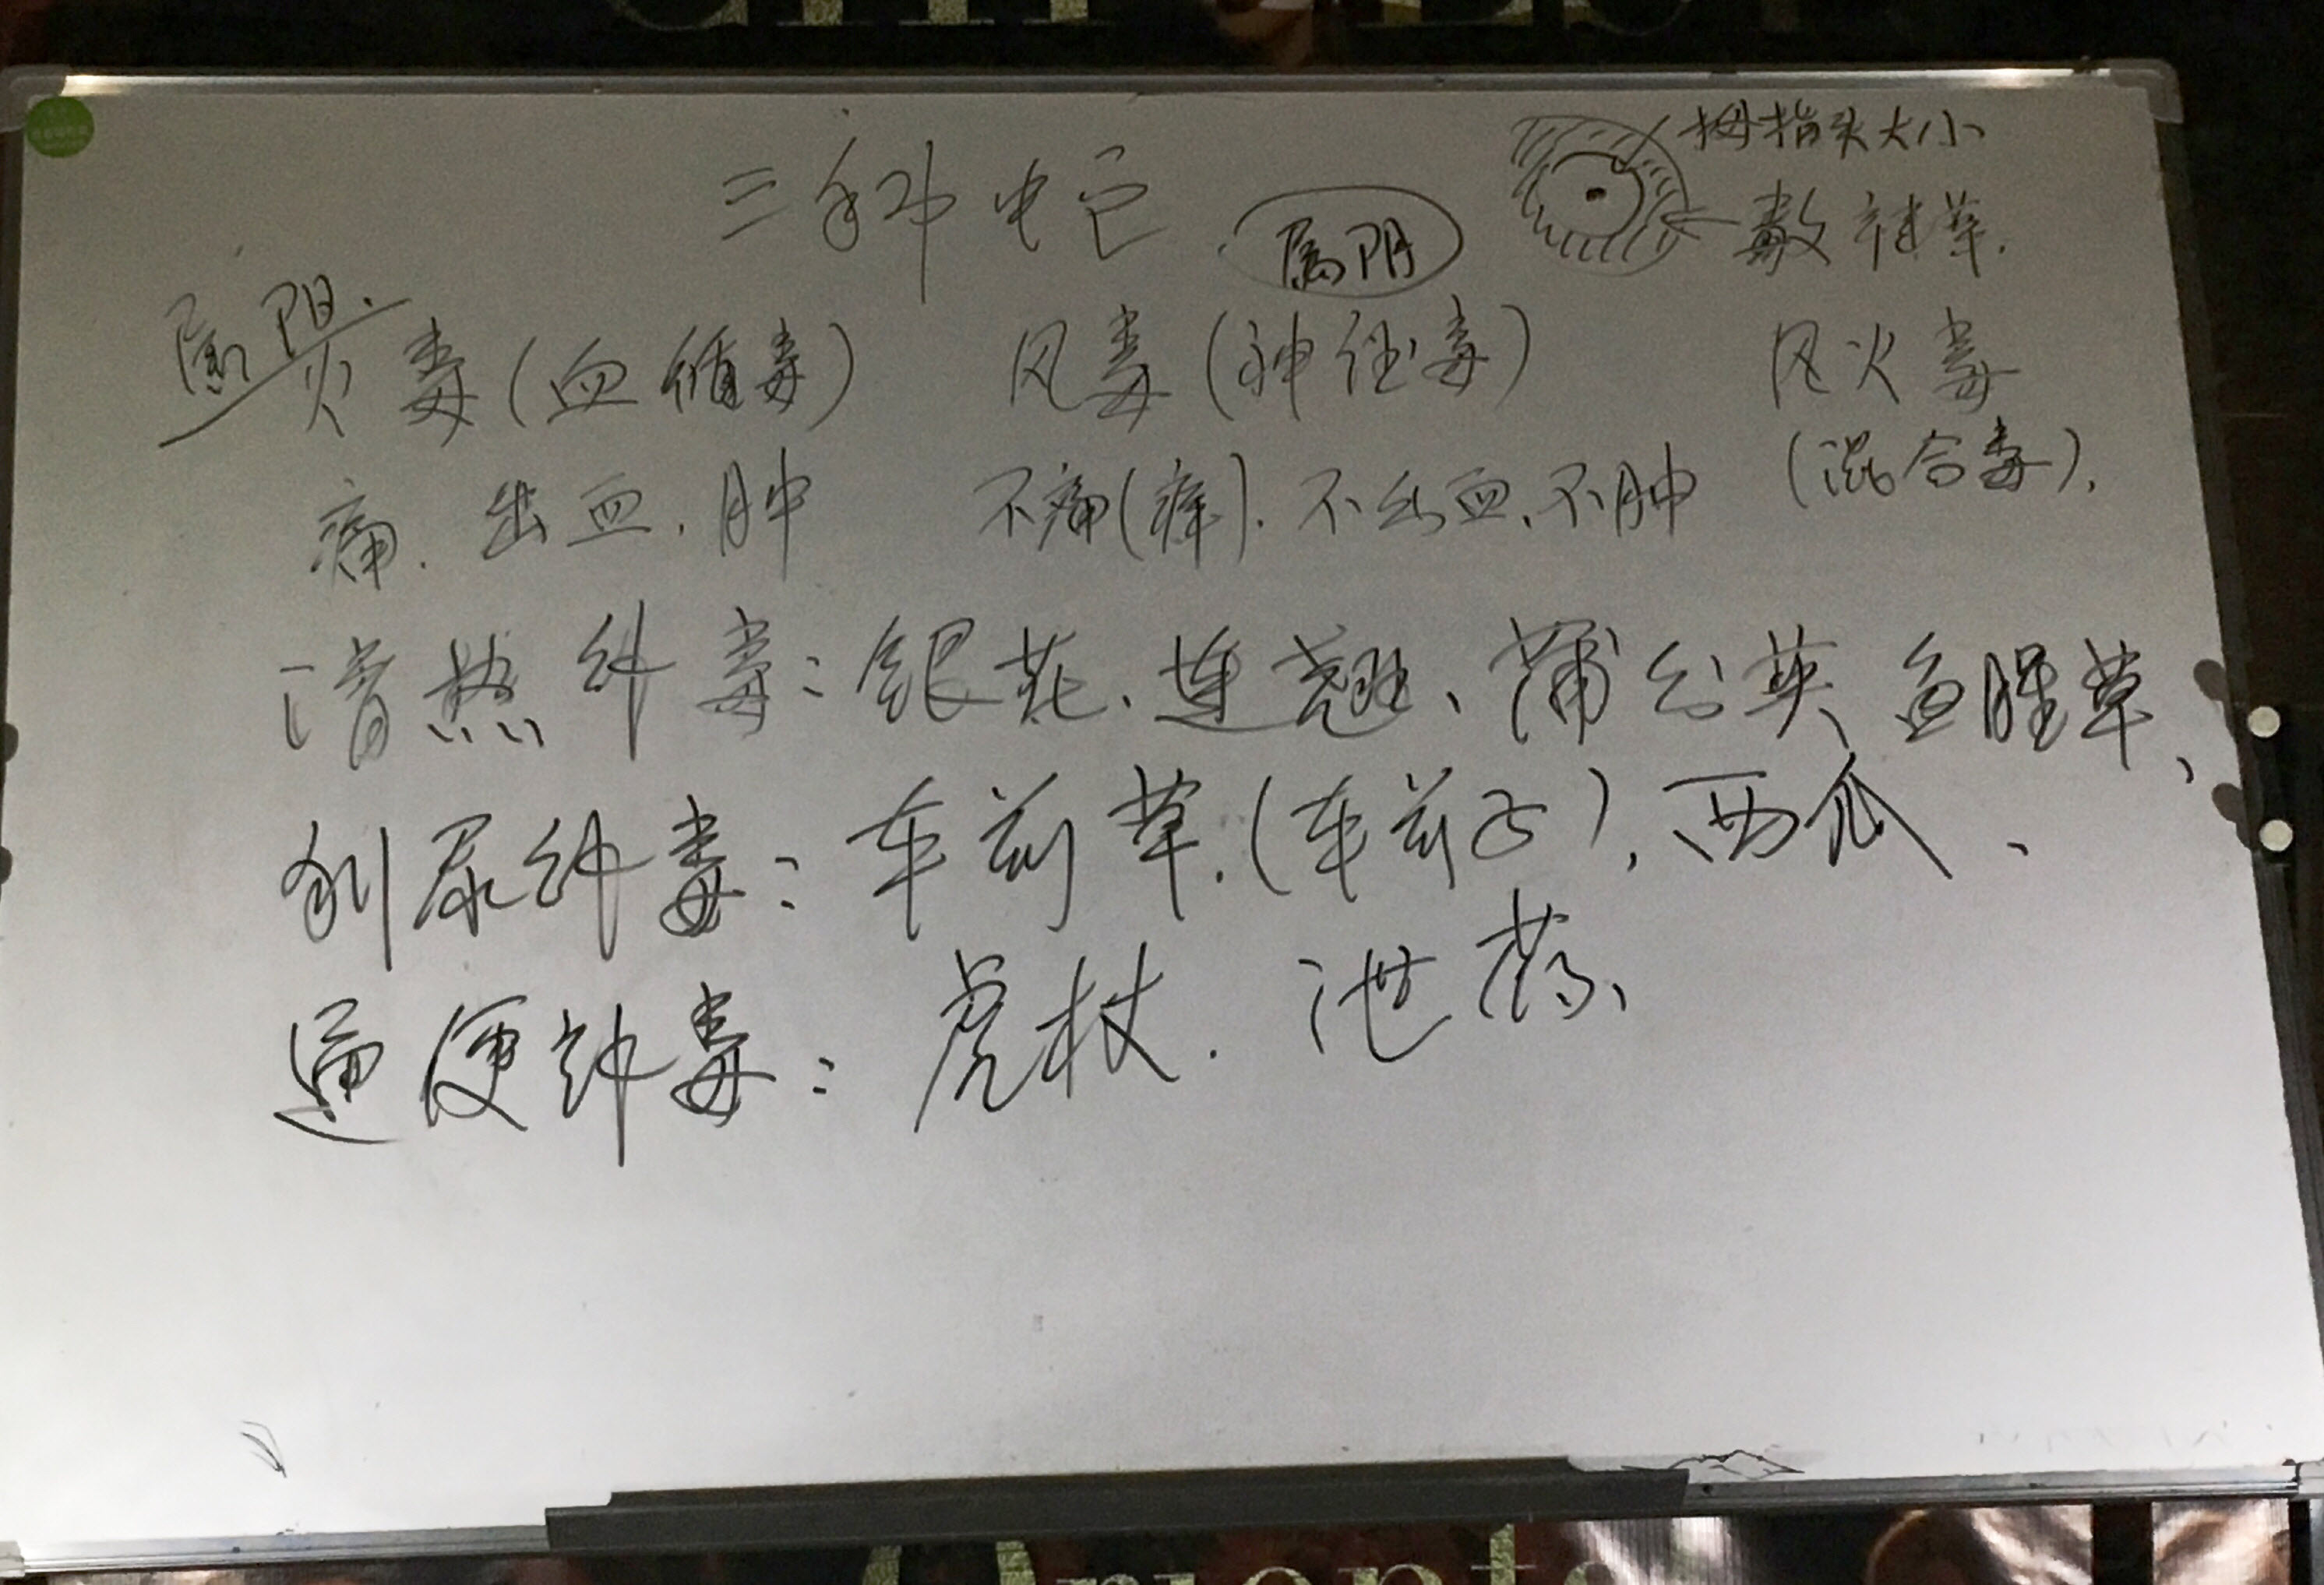 三种蛇
属阴
拇指头大小
敷 草.
属阳.
火毒(血循毒)
风毒(神经毒)
风火毒
(混合毒).
痛. 出血. 肿
不痛(痒). 不出血、不肿
清热解毒: 银花、连翘、蒲公英、鱼腥草、
利尿解毒: 车前草.(车前子), 西瓜、
通便解毒: 虎杖. 泄药、